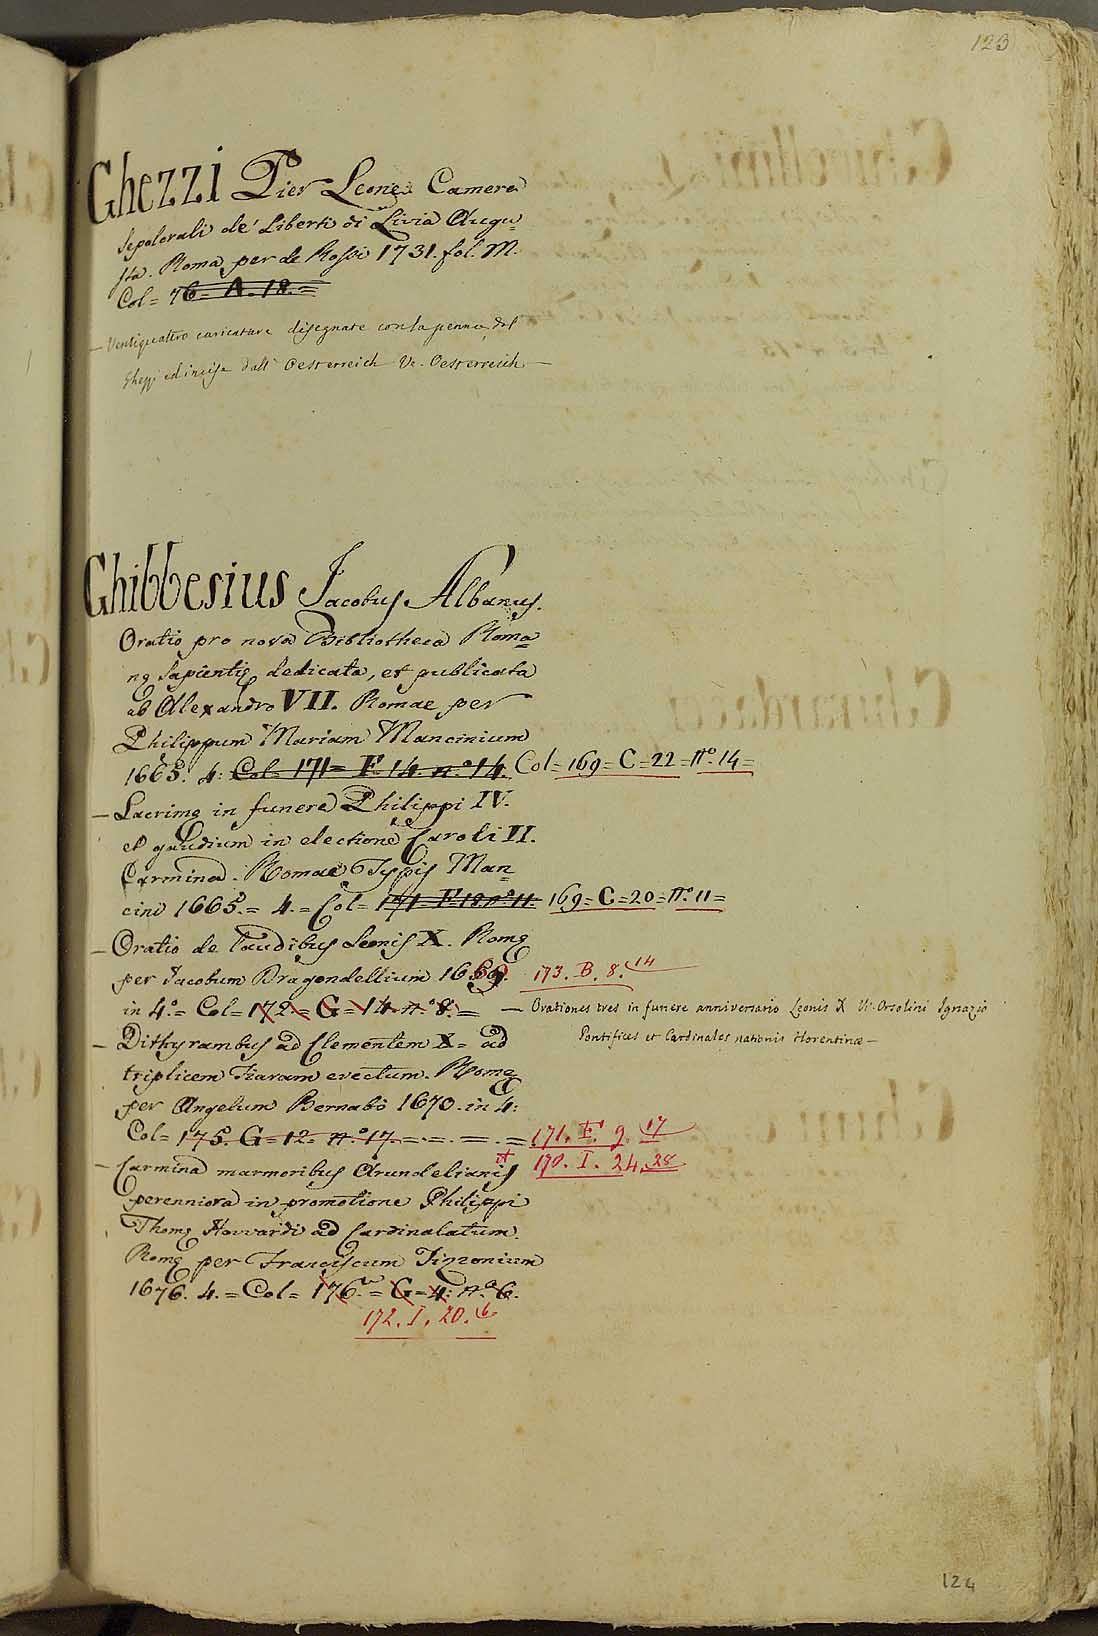 123
Ghezzi Pier Leone. Camere
sepolcrali de' Liberti di Livia Augu=
sta. Roma per de Rossi 1731. fol. M.
Col= 76= A. 18.=
— Ventiquattro caricature disegnate con la penna del
Ghezzi ed incise dall' Oesterreich V. Oesterreich —
Ghibbesius Jacobus Albanus.
Oratio pro nova Bibliotheca Roma=
nę Sapientię dedicata, et publicata
ab Alexandro VII. Romae per
Philippum Mariam Mancinium
1665. 4: Col= 171= F. 14. n.o 14. Col= 169= C= 22= No. 14=
— Lacrimę in funere Philippi IV.
et gaudium in electione Caroli II.
Carmina. Romae Typis Man=
cini 1665.= 4.= Col= 171= F. 18 no. 11. 169= C= 20= No. 11=
— Oratio de laudibus Leonis X. Romę
per Jacobum Dragondellium 1669. 173. B. 8. 14
in 4.o= Col= 172.= G= 14. no. 8.= — Orationes tres in funere anniversario Leonis X V. Orsolini Ignazio
Pontifices et Cardinales nationis Florentinæ —
— Dithyrambus ad Clementem X= ad
triplicem Tiaram evectum. Romę
per Angelum Bernabò 1670. in 4:
Col= 175. G= 12= n.o 17.= 171. F. 9. 17
et 170. I. 24. 28
— Carmina marmoribus Arundelianis
perenniora in promotione Philippi
Thomę Howardi ad Cardinalatum.
Romę per Franciscum Tizzonium
1676. 4.= Col= 176.= G= 4: n.o 6.
172. I. 20. 6
124